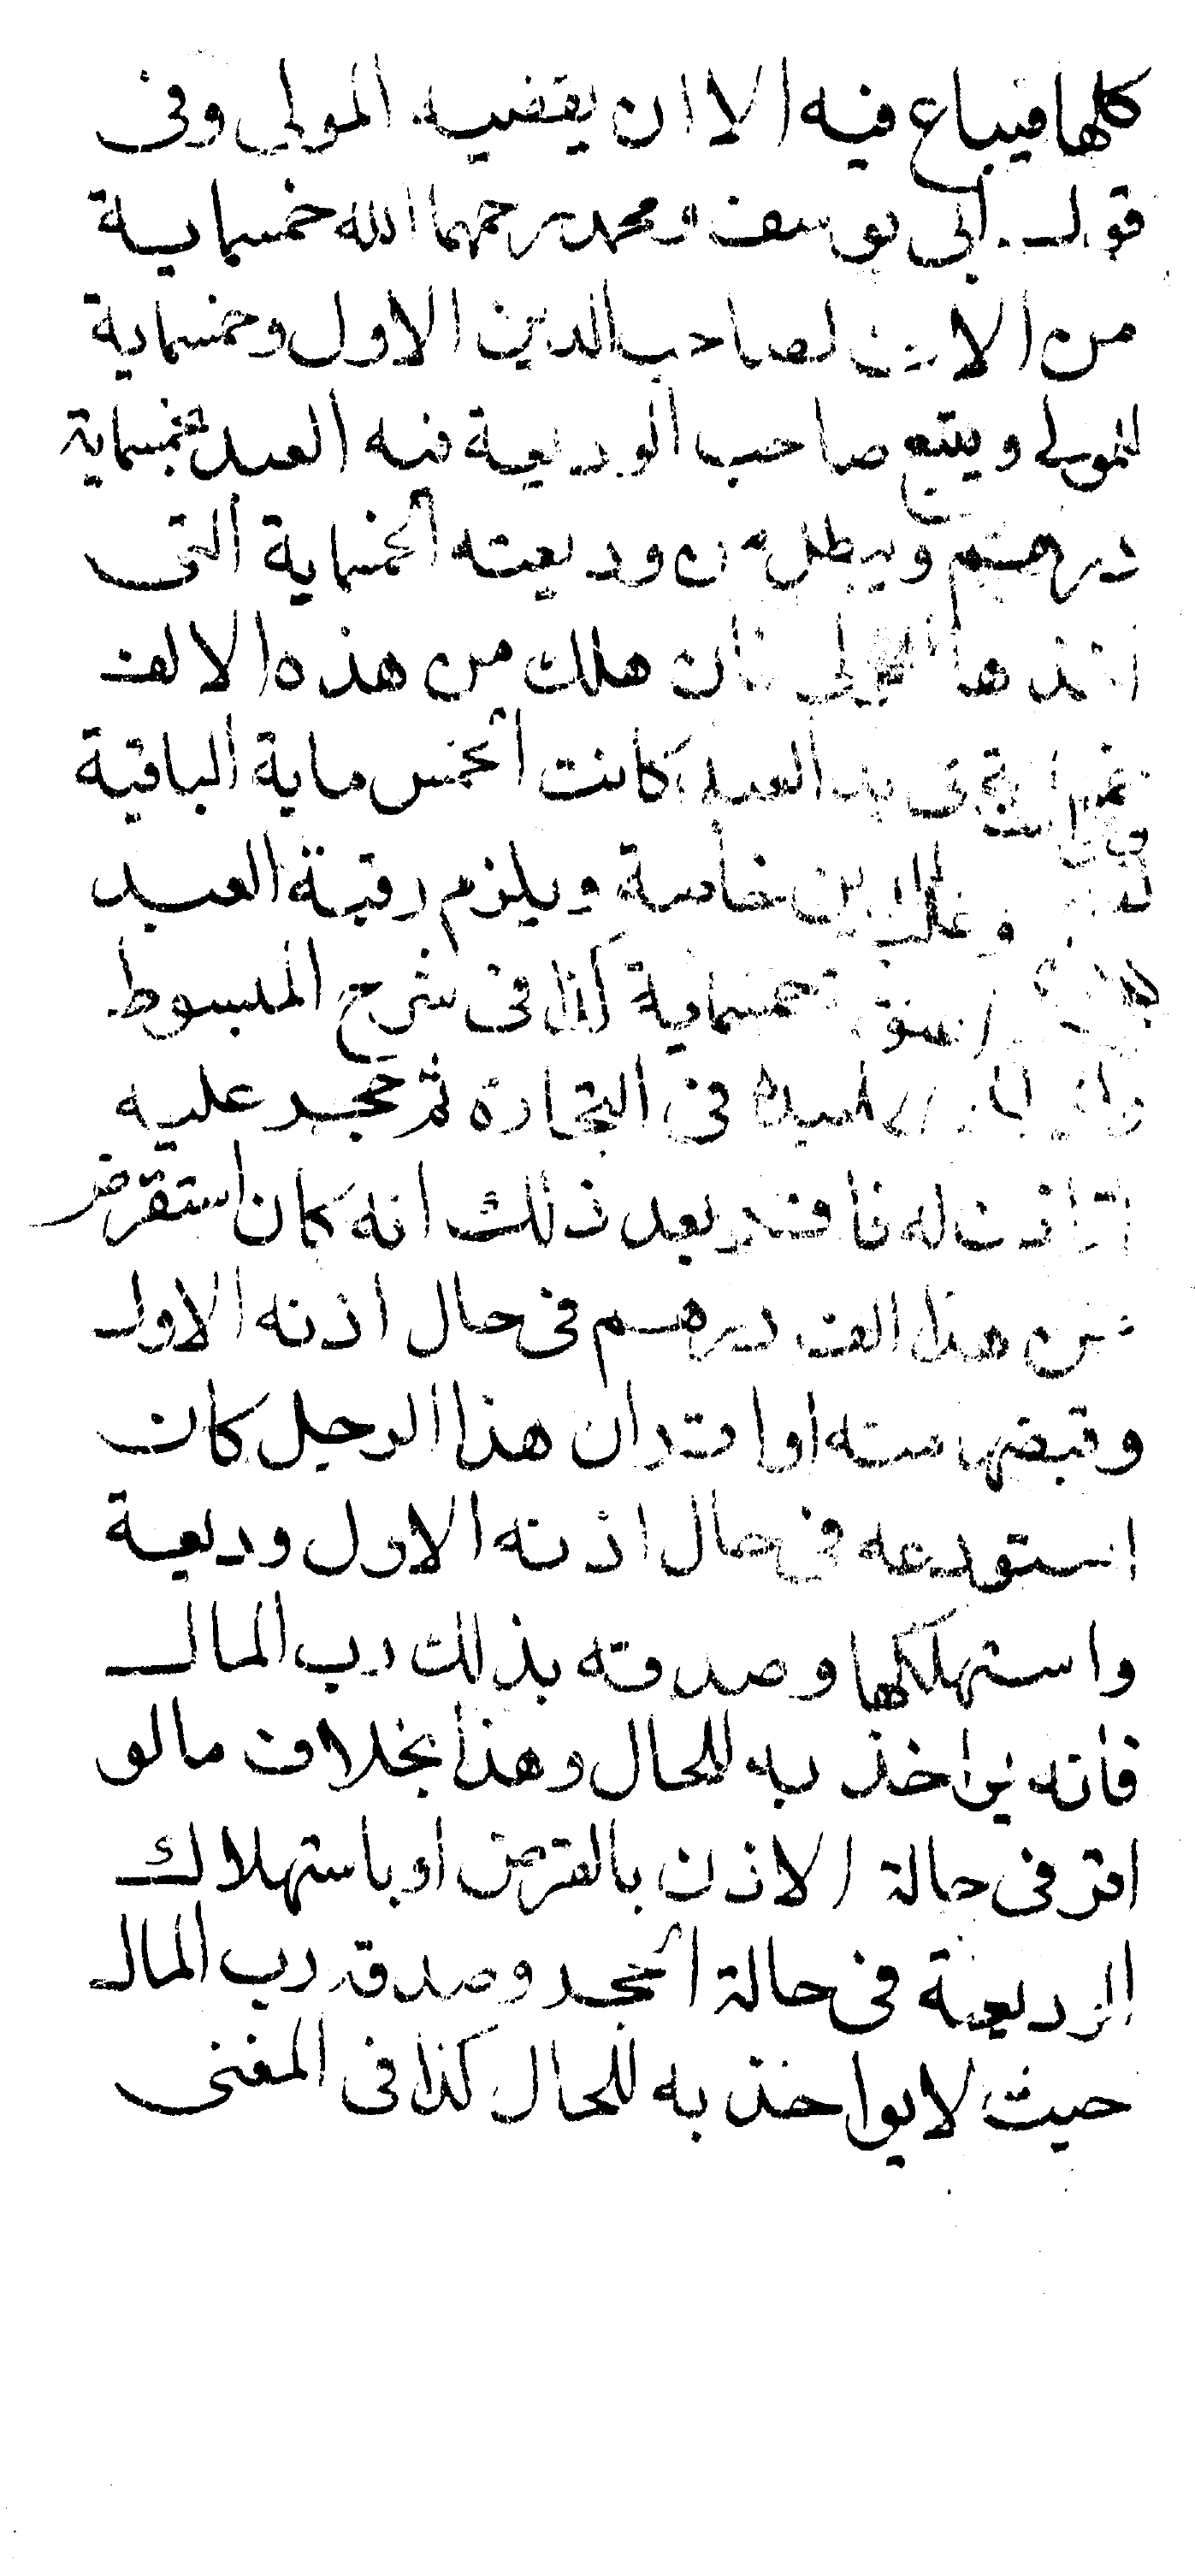 كلها فيباع فيه الا ان يقضيه المولى وفى
قول ابى يوسف ومحمد رحمهما الله خمسماية
من الالف لصاحب الدين الاول وخمسماية
للمولى ويتبع صاحب الوديعة فيه العبد بخمسماية
درهم ويبطل من وديعته الخمسماية التى
اخذها المولى فان هلك من هذه الالف
فى يد العبد كانت الخمس ماية الباقية
الدين خاصة ويلزم رقبة العبد
خمسماية كذا فى شرح المبسوط
لعبده فى التجارة ثم حجر عليه
اذن له فاقر بعد ذلك انه كان استقرض
من هذا الف درهم فى حال اذنه الاول
وقبضها منه او اقر ان هذا الرجل كان
استودعه فى حال اذنه الاول وديعة
واستهلكها وصدقه بذلك رب المال
فانه يواخذ به للحال وهذا بخلاف ما لو
اقر فى حالة الاذن بالقرض او باستهلاك
الوديعة فى حالة الحجر وصدقه رب المال
حيث لا يواخذ به للحال كذا فى المغنى